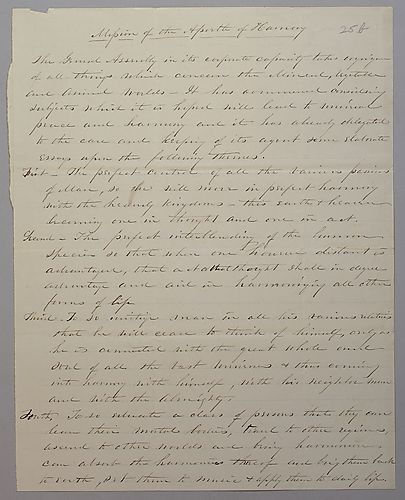 Mission of the Apostle of Harmony 25ft
The General Assembly in its corporate capacity takes cognizance
of all things which concern the Mineral, Vegetable
and Animal Worlds – It has commenced considering
subjects which it is hoped will lead to universal
peace and harmony and it has already delegated
to the care and keeping of its agent some elaborate
Essays upon the following themes.
First – The perfect control of all the various passions
of Man, so he will move in perfect harmony
with the heavenly kingdoms – thus earth & heaven
becoming one in thought and one in act.
Second – The perfect interblending of the human
species so that when one however distant is
advantaged, that a thought shall in degree
advantage and aid in harmonizing all other
forms of life
Third. To so instruct man in all his various relations
that he will cease to think of himself, only as
he is connected with the great whole and
soul of all the vast Universe & thus coming
into harmony with himself, with his neighbor man
and with the Almighty.
Fourth, To so educate a class of persons that they can
leave their mortal bodies, travel to other regions,
ascend to other worlds and being harmonious,
can absorb the harmonies thereof and bring them back
to Earth, set them to music & apply them to daily life.